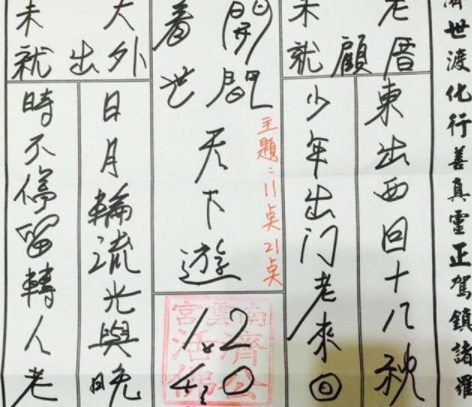 濟世渡化行善真靈正駕鎮諸羅
老厝
顧
未就
東出西回十八秋
少年出门老來回
主題：11点21点
開間
看世
天下遊
南雲宮
濟公
活佛
1.2
4.0
大外
出
未就
日月輪流光與晚
時不停留轉人老